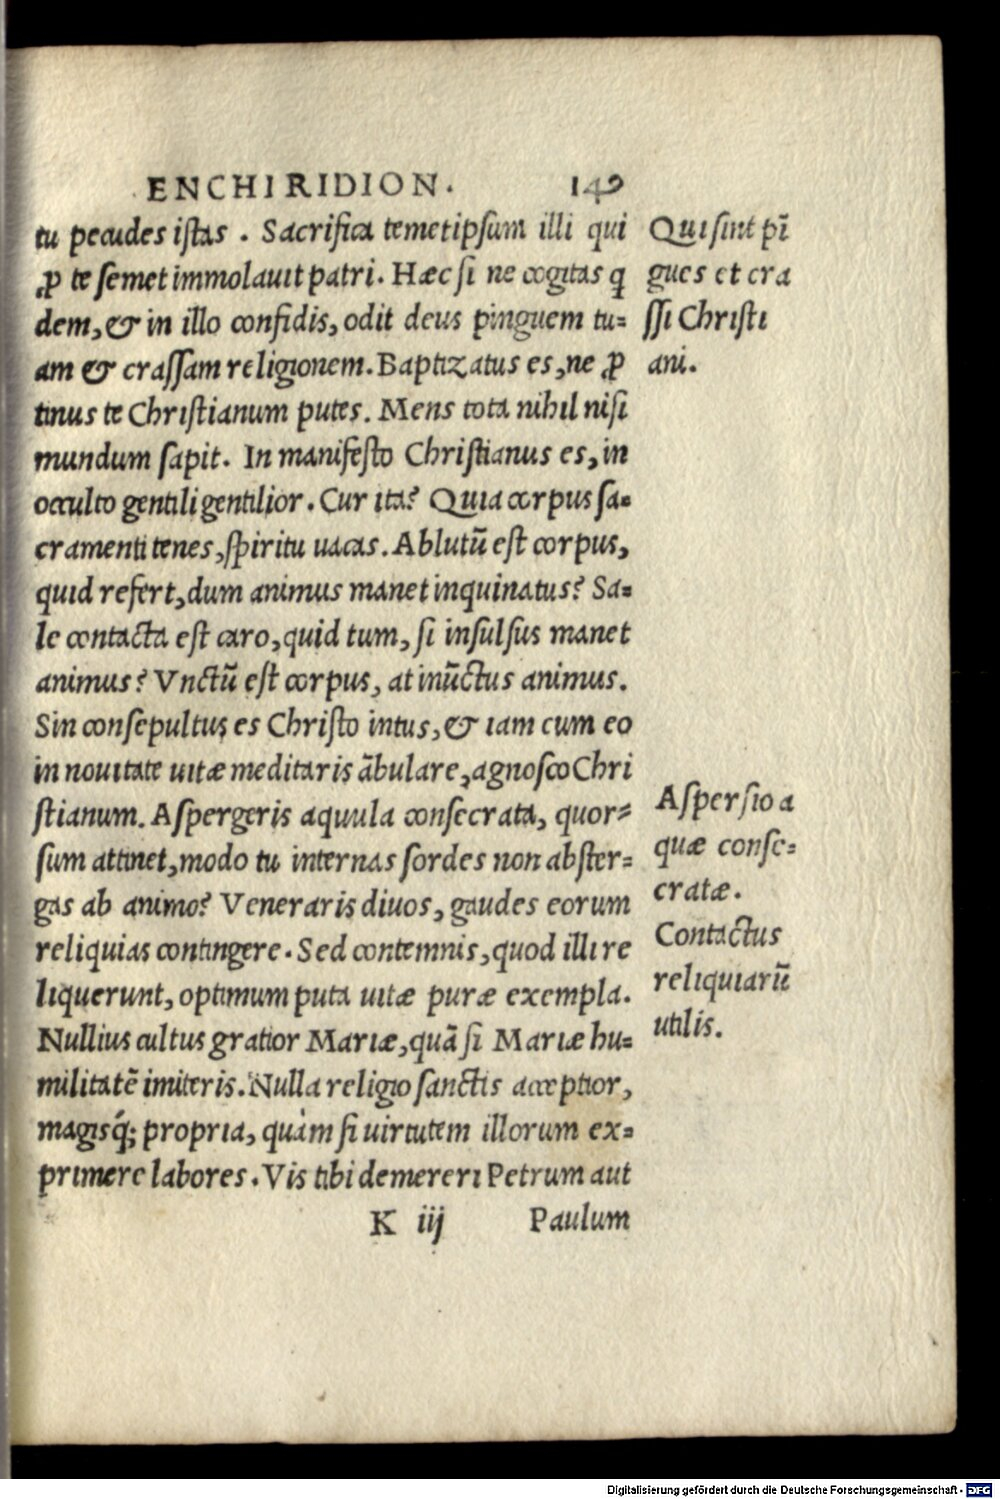 ENCHIRIDION. 149
tu pecudes istas . Sacrifica temetipsum illi qui
ꝓ te semet immolauit patri. Hæc si ne cogitas q
dem, & in illo confidis, odit deus pinguem tu=
am & crassam religionem. Baptizatus es, ne ꝓ
tinus te Christianum putes. Mens tota nihil nisi
mundum sapit. In manifesto Christianus es, in
occulto gentili gentilior. Cur ita? Quia corpus sa=
cramenti tenes, spiritu uacas. Ablutū est corpus,
quid refert, dum animus manet inquinatus? Sa=
le contacta est caro, quid tum, si insulsus manet
animus? Vnctū est corpus, at inūctus animus.
Sin consepultus es Christo intus, & iam cum eo
in nouitate uitæ meditaris ābulare, agnosco Chri
stianum. Aspergeris aquula consecrata, quor=
sum attinet, modo tu internas sordes non abster=
gas ab animo? Veneraris diuos, gaudes eorum
reliquias contingere. Sed contemnis, quod illi re
liquerunt, optimum puta uitæ puræ exempla.
Nullius cultus gratior Mariæ, quā si Mariæ hu=
militatē imiteris. Nulla religio sanctis acceptior,
magisq́; propria, quàm si uirtutem illorum ex=
primere labores. Vis tibi demereri Petrum aut
K iij Paulum
Qui sint pī
gues et cra
ssi Christi
ani.
Aspersio a
quæ conse=
cratæ.
Contactus
reliquiarū
utilis.
Digitalisierung gefördert durch die Deutsche Forschungsgemeinschaft - DFG